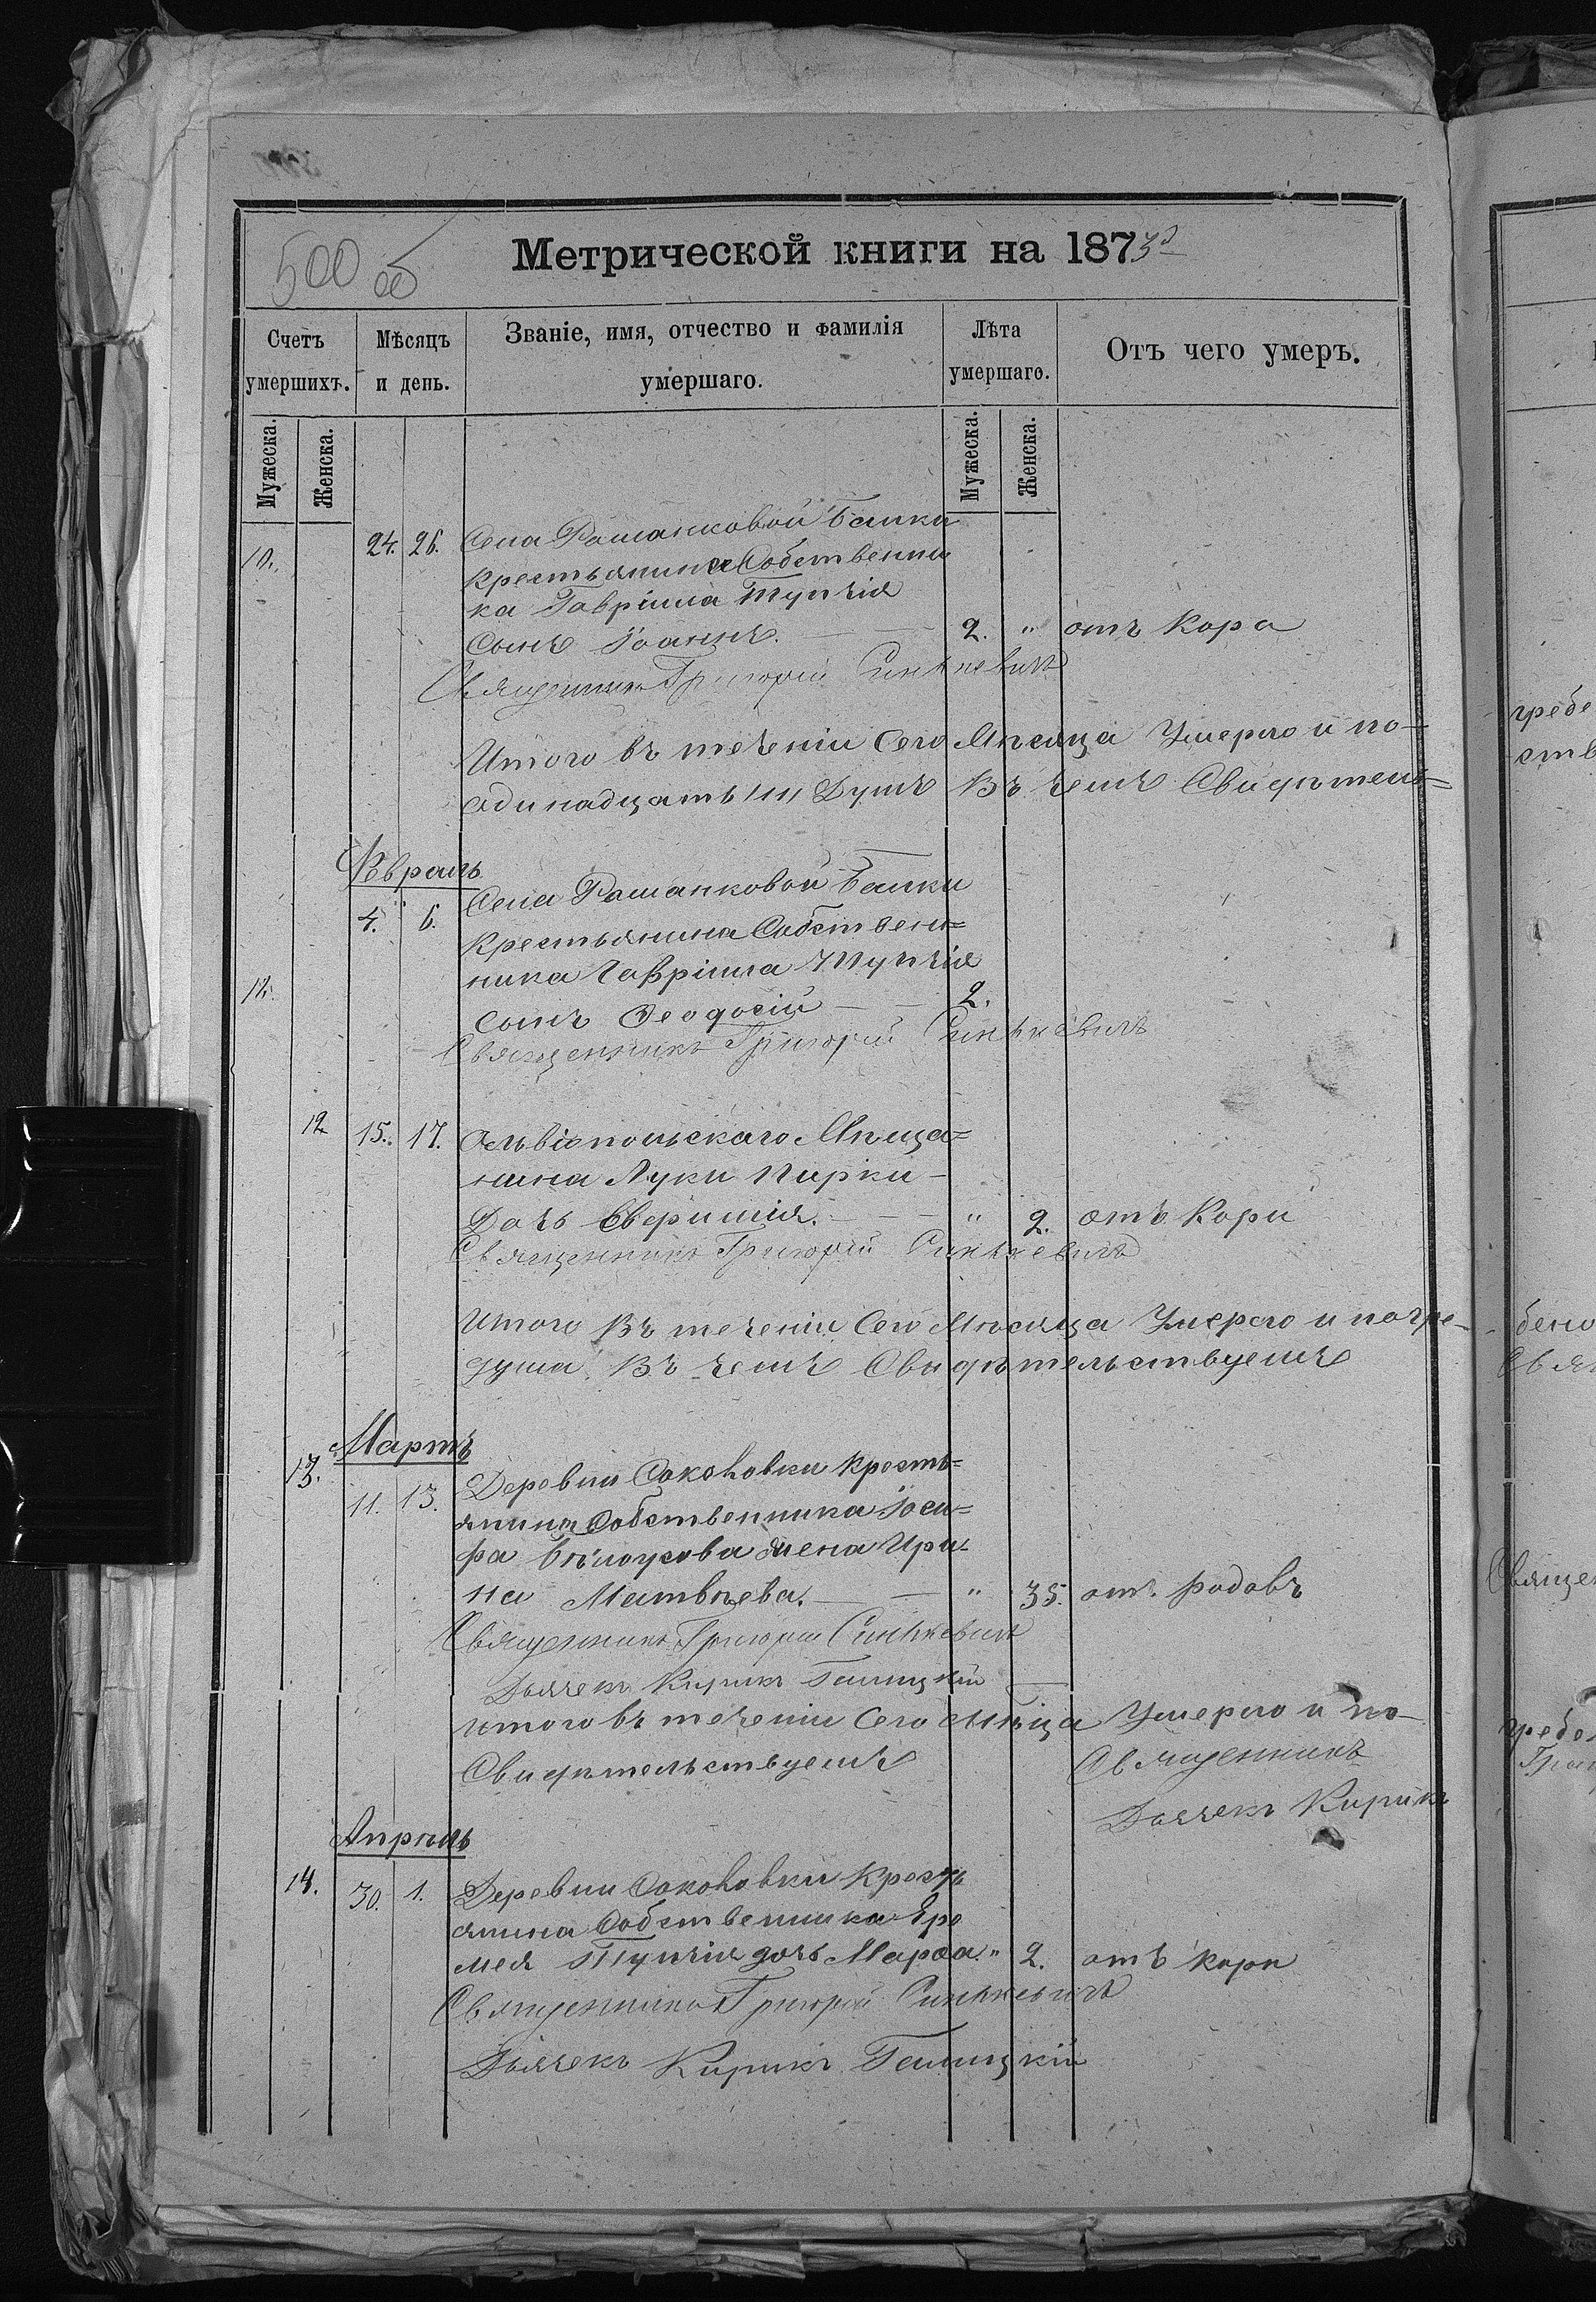 500 об
Метрической книги на 1873
Счетъ умершихъ.
Мѣсяцъ и день.
Званіе, имя, отчество и фамилія умершаго.
Лѣта умершаго.
Отъ чего умеръ.
Мужеска. Женска. Мужеска. Женска.
10. 24. 26. Села Романковой Балки
крестьянина Собственни
ка Гавріила Тупчія
Сынъ Іоаннъ. — — 2. " отъ Кора
Священникъ Григорій Синькевичъ
Итого въ теченіи Сего Мѣсяца Умерло и по-
одинадцать 11 Душъ Въ чемъ Свидѣтель=
Февраль
4. 6. Села Романковой Балки
Крестьянина Собствен=
ника Гавріила Тупчія
12. сынъ Ѳеодосій — — 2.
Священникъ Григорій Синькевичъ
12 15. 17. Ольвіопольскаго Мѣща=
нина Луки Пирки —
Дочь — — " 2. отъ Кори
Священникъ Григорій Синькевичъ
Итого Въ теченіи Сего Мѣсяца Умерло и погре-
душа. Въ чемъ Свидѣтельствуемъ
Мартъ
13. 11. 13. Деревни Соколовки кресть=
янина Собственника Іоси=
фа Бѣлоусова жена Ири-
на Матвѣева. — — " 35. от. родовъ
Священникъ Григорій Синькевичъ
Дьячекъ Кирикъ Галицкій —
итого въ теченіи Сего Мѣсяца Умерло и по-
Свидѣтельствуемъ Священникъ
Дьячекъ Кирикъ
Апрѣль
14. 30. 1. Деревни Соколовки Кресть
янина Собственника Ере
мея Тупчія дочь Марѳа. " 2. отъ кори
Священникъ Григорій Синькевичъ
Дьячекъ Кирикъ Галицкій
гребе
ств
бено
Свя
Священ
гребе